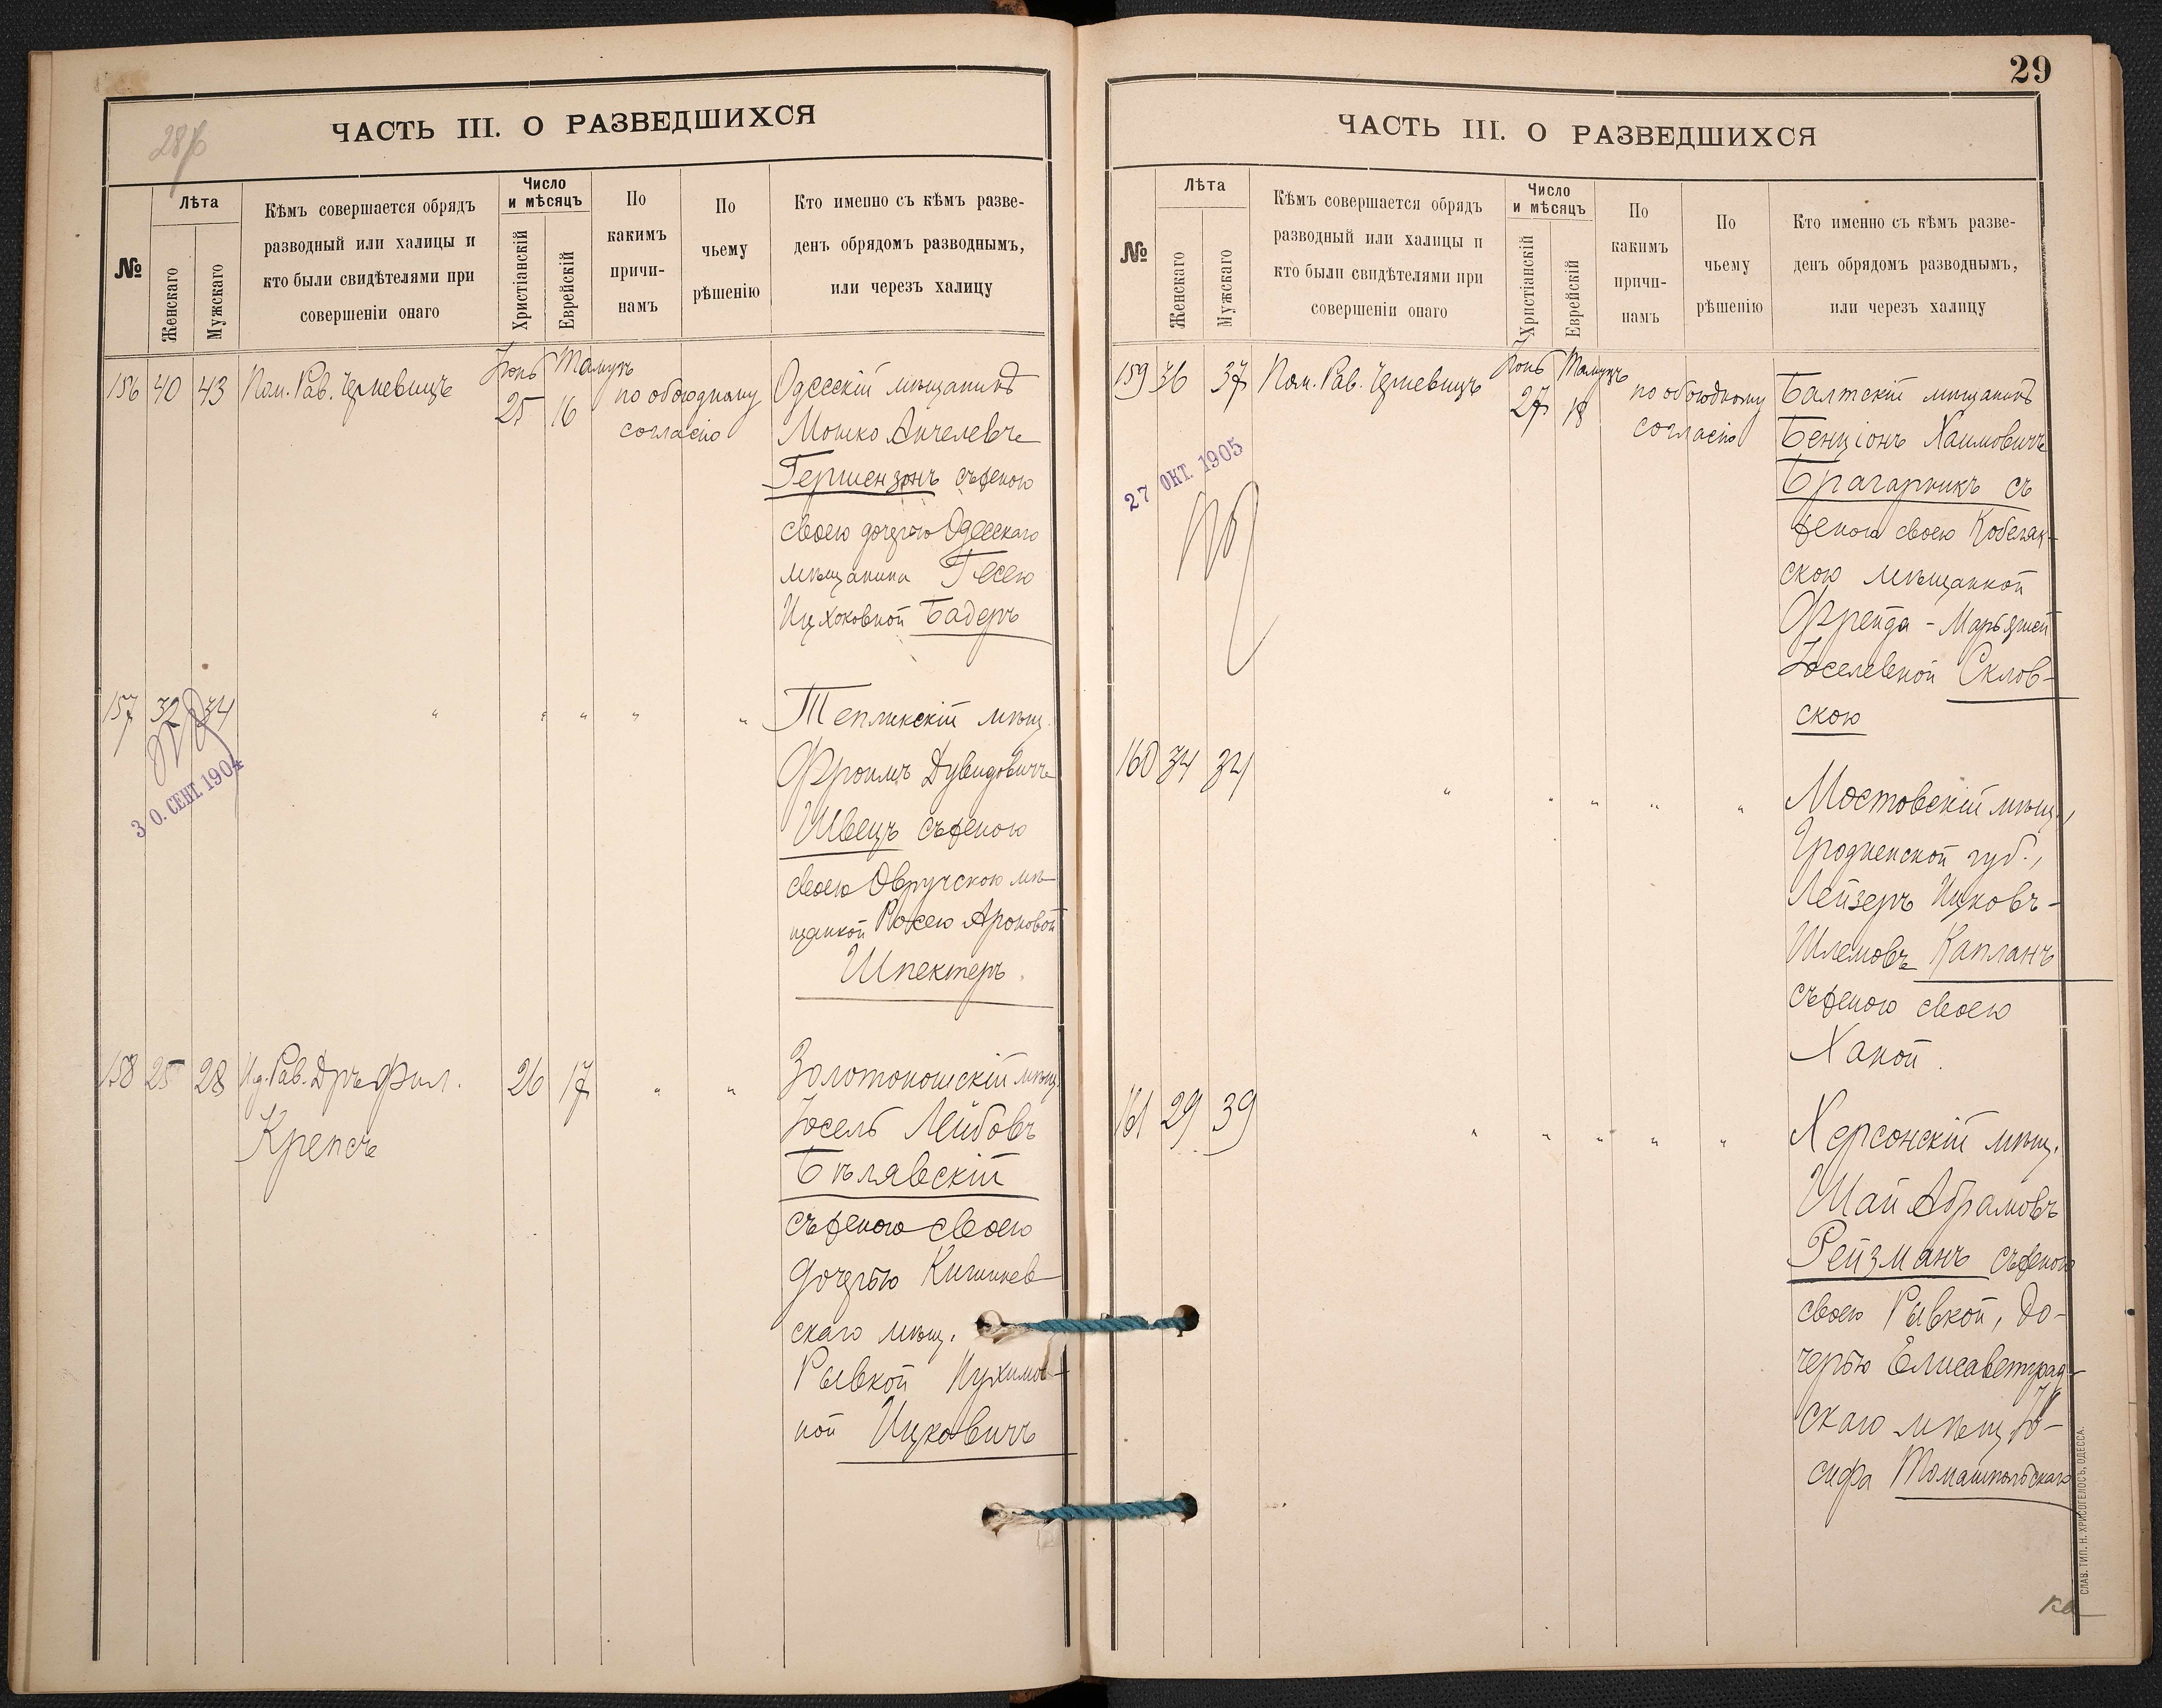 28/б
ЧАСТЬ III. О РАЗВЕДШИХСЯ
№
Лѣта
Женскаго
Мужскаго
Кѣмъ совершается обрядъ
разводный или халицы и
кто были свидѣтелями при
совершеніи онаго
Число
и мѣсяцъ
Христіанскій
Еврейскій
По
какимъ
причи-
намъ
По
чьему
рѣшенію
Кто именно съ кѣмъ разве-
денъ обрядомъ разводнымъ,
или черезъ халицу
Іюнь Тамузъ
156 40 43 Пом. Рав. Черневицъ 25 16 по обоюдному
согласію
Одесскій мѣщанинъ
Мошко Анчелевъ
Гершензонъ съ женою
своею дочерью Одесскаго
мѣщанина Гесею
Ицхоковной Бадеръ
157 32 34 " " " " "
30. СЕНТ. 1904
Тепликскій мѣщ.
Фроимъ Дувидовичъ
Швецъ съ женою
своею Овручскою мѣ-
щанкой Рохею Ароновой
Шпектеръ.
158 25 28 И.д. Рав. Дръ Фил. 26 17 " "
Крепсъ
Золотоношскій мѣщ.
Іосель Лейбовъ
Бѣлявскій
съ женою своею
дочерью Кишинев-
скаго мѣщ.
Рывкой Нухимов-
ной Ицковичъ
29
ЧАСТЬ III. О РАЗВЕДШИХСЯ
№
Лѣта
Женскаго
Мужскаго
Кѣмъ совершается обрядъ
разводный или халицы и
кто были свидѣтелями при
совершеніи онаго
Число
и мѣсяцъ
Христіанскій
Еврейскій
По
какимъ
причи-
намъ
По
чьему
рѣшенію
Кто именно съ кѣмъ разве-
денъ обрядомъ разводнымъ,
или черезъ халицу
Іюнь Тамузъ
159 36 37 Пом. Рав. Черневицъ 27 18 по обоюдному
согласію
27 ОКТ. 1905
Балтскій мѣщанинъ
Бенціонъ Хаимовичъ
Брагарникъ съ
женою своею Кобеляк-
скою мѣщанкой
Фрейда-Марьясей
Іоселевной Склов-
скою
160 34 34 " " " " "
Мостовскій мѣщ.,
Гродненской губ.,
Лейзеръ Ицковъ-
Шлемовъ Капланъ
съ женою своею
Ханой.
161 29 39 " " " " "
Херсонскій мѣщ.
Шай Абрамовъ
Рейзманъ съ женою
своею Рывкой, до-
черью Елисаветград-
скаго мѣщ. Іо-
сифа Томашпольскаго
СЛАВ. ТИП. Н. ХРИСОГЕЛОСЪ, ОДЕССА.